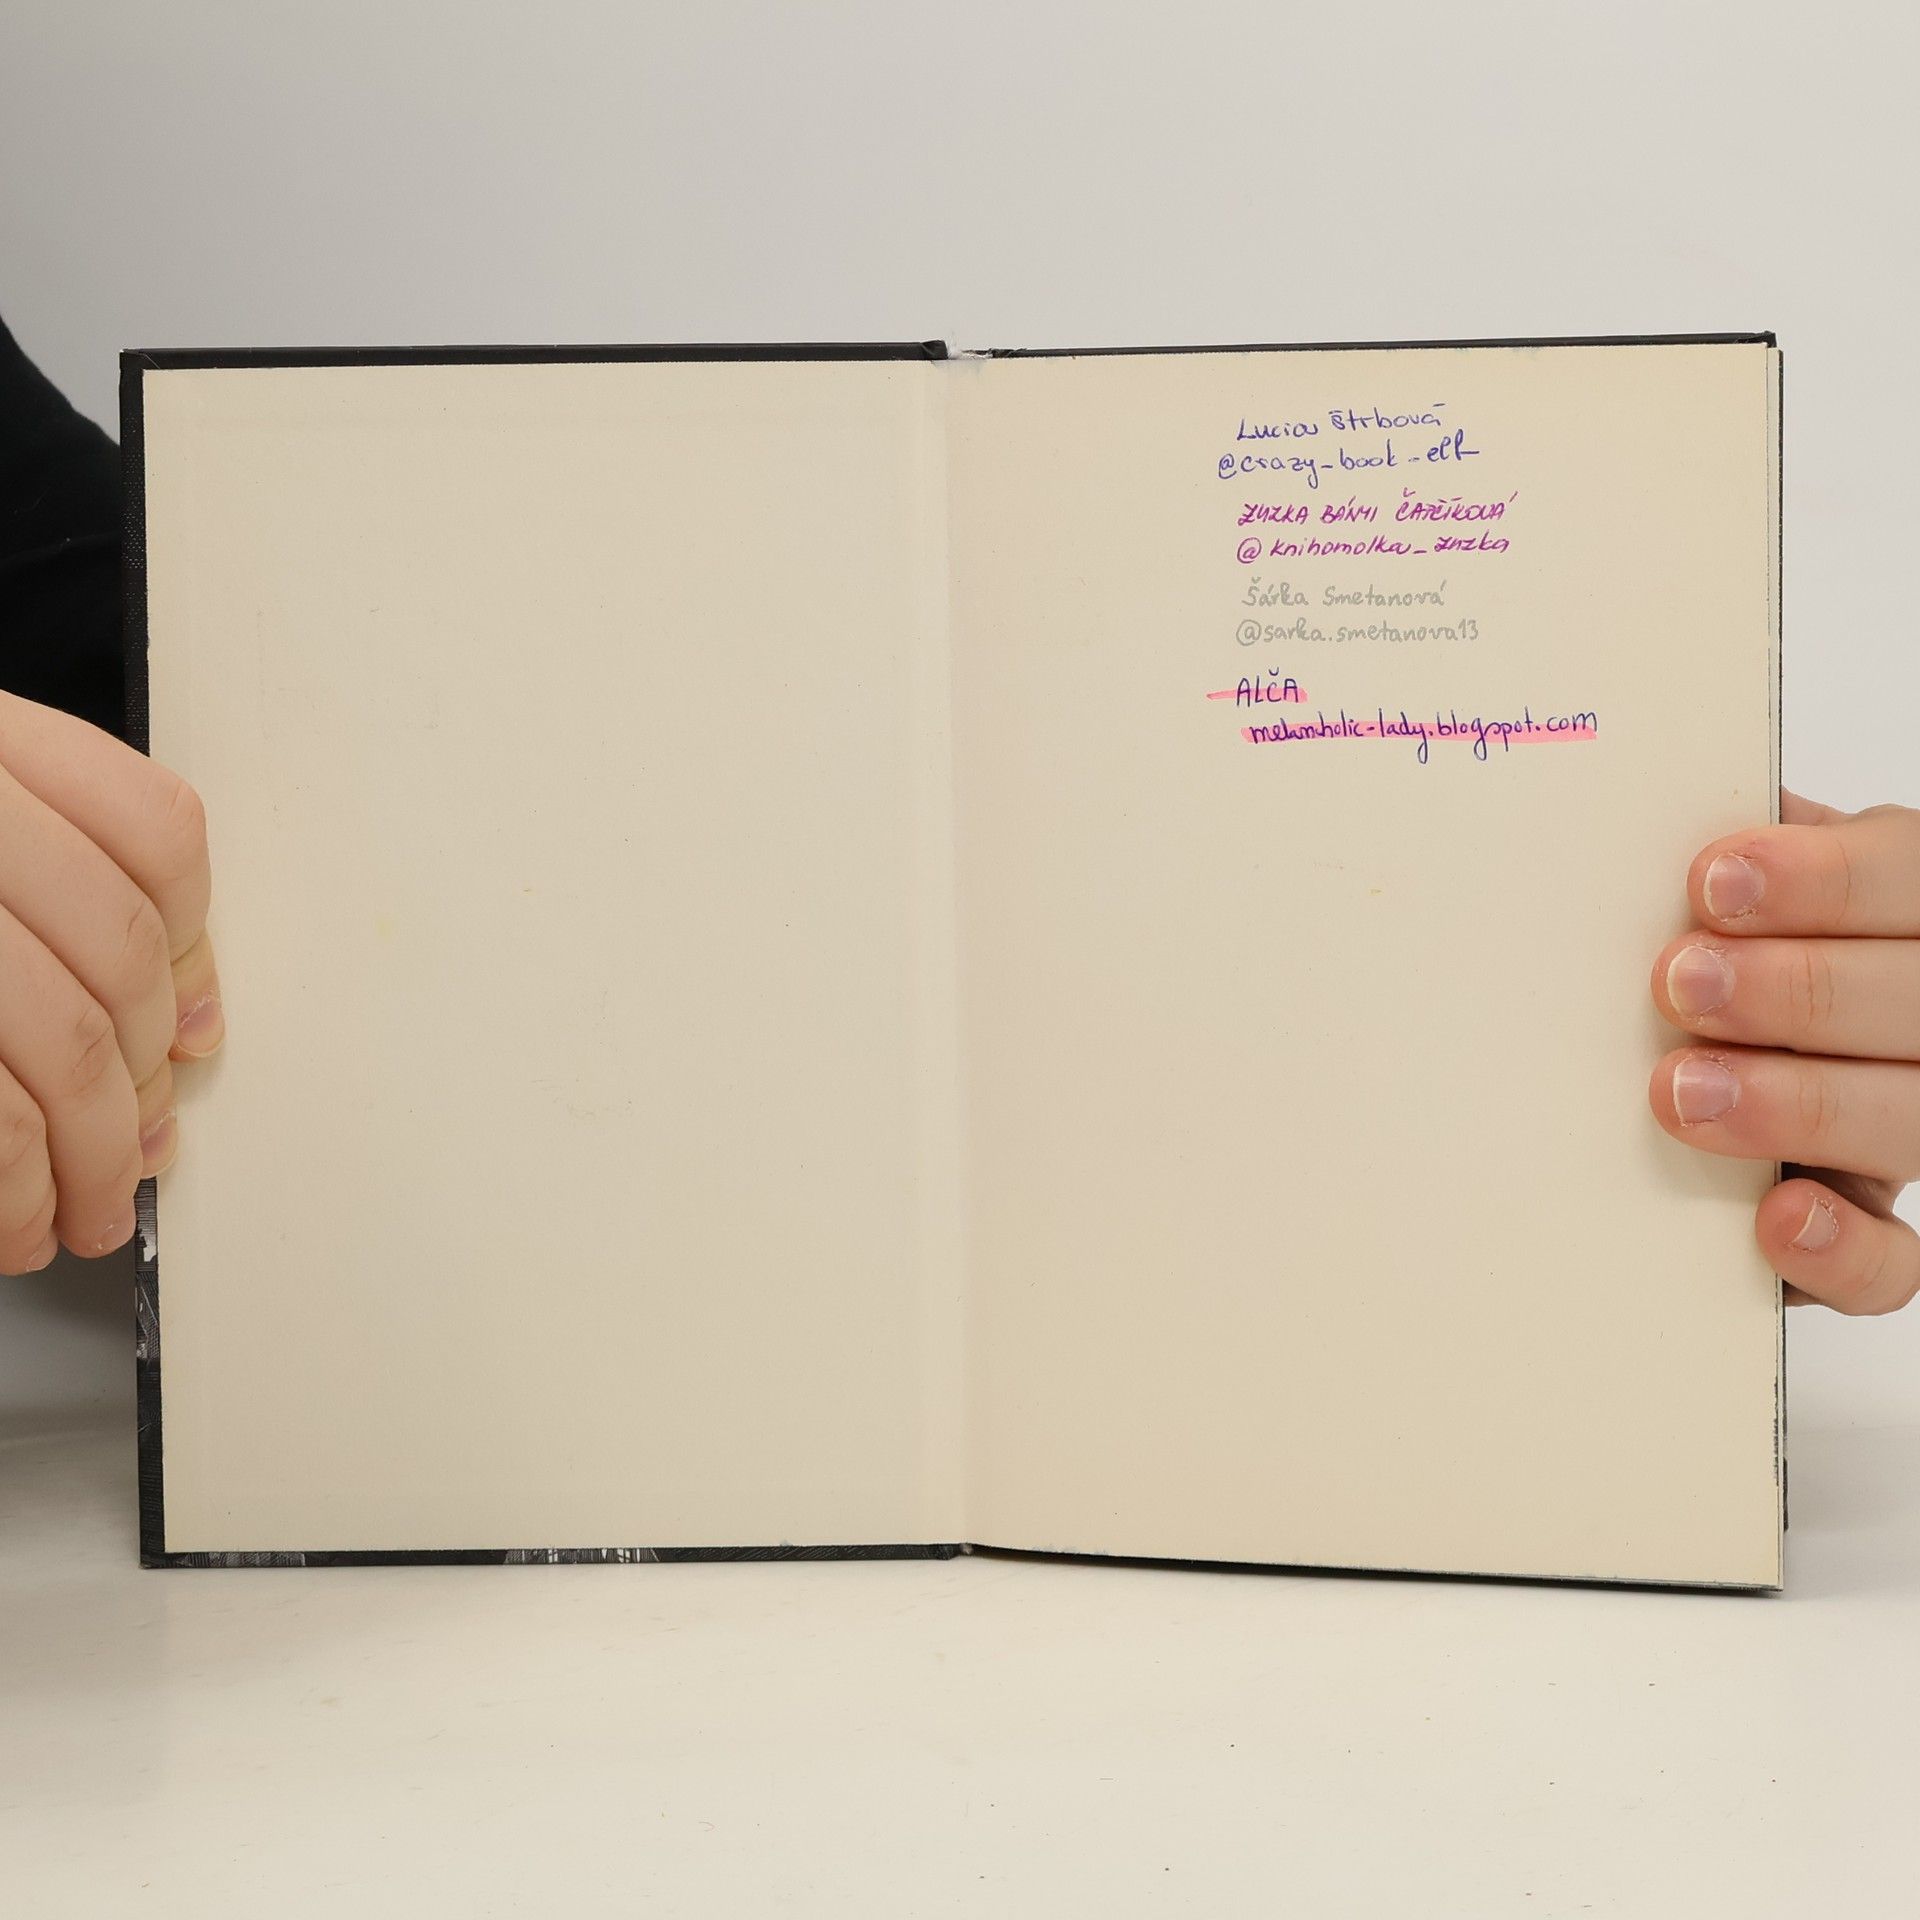 Lucia Štrbová
@crazy_book_elf
ZUZKA BÁNYI ČAPČÍKOVÁ
@knihomolka_zuzka
Šárka Smetanová
@sarka.smetanova13
ALČA
melancholic-lady.blogspot.com